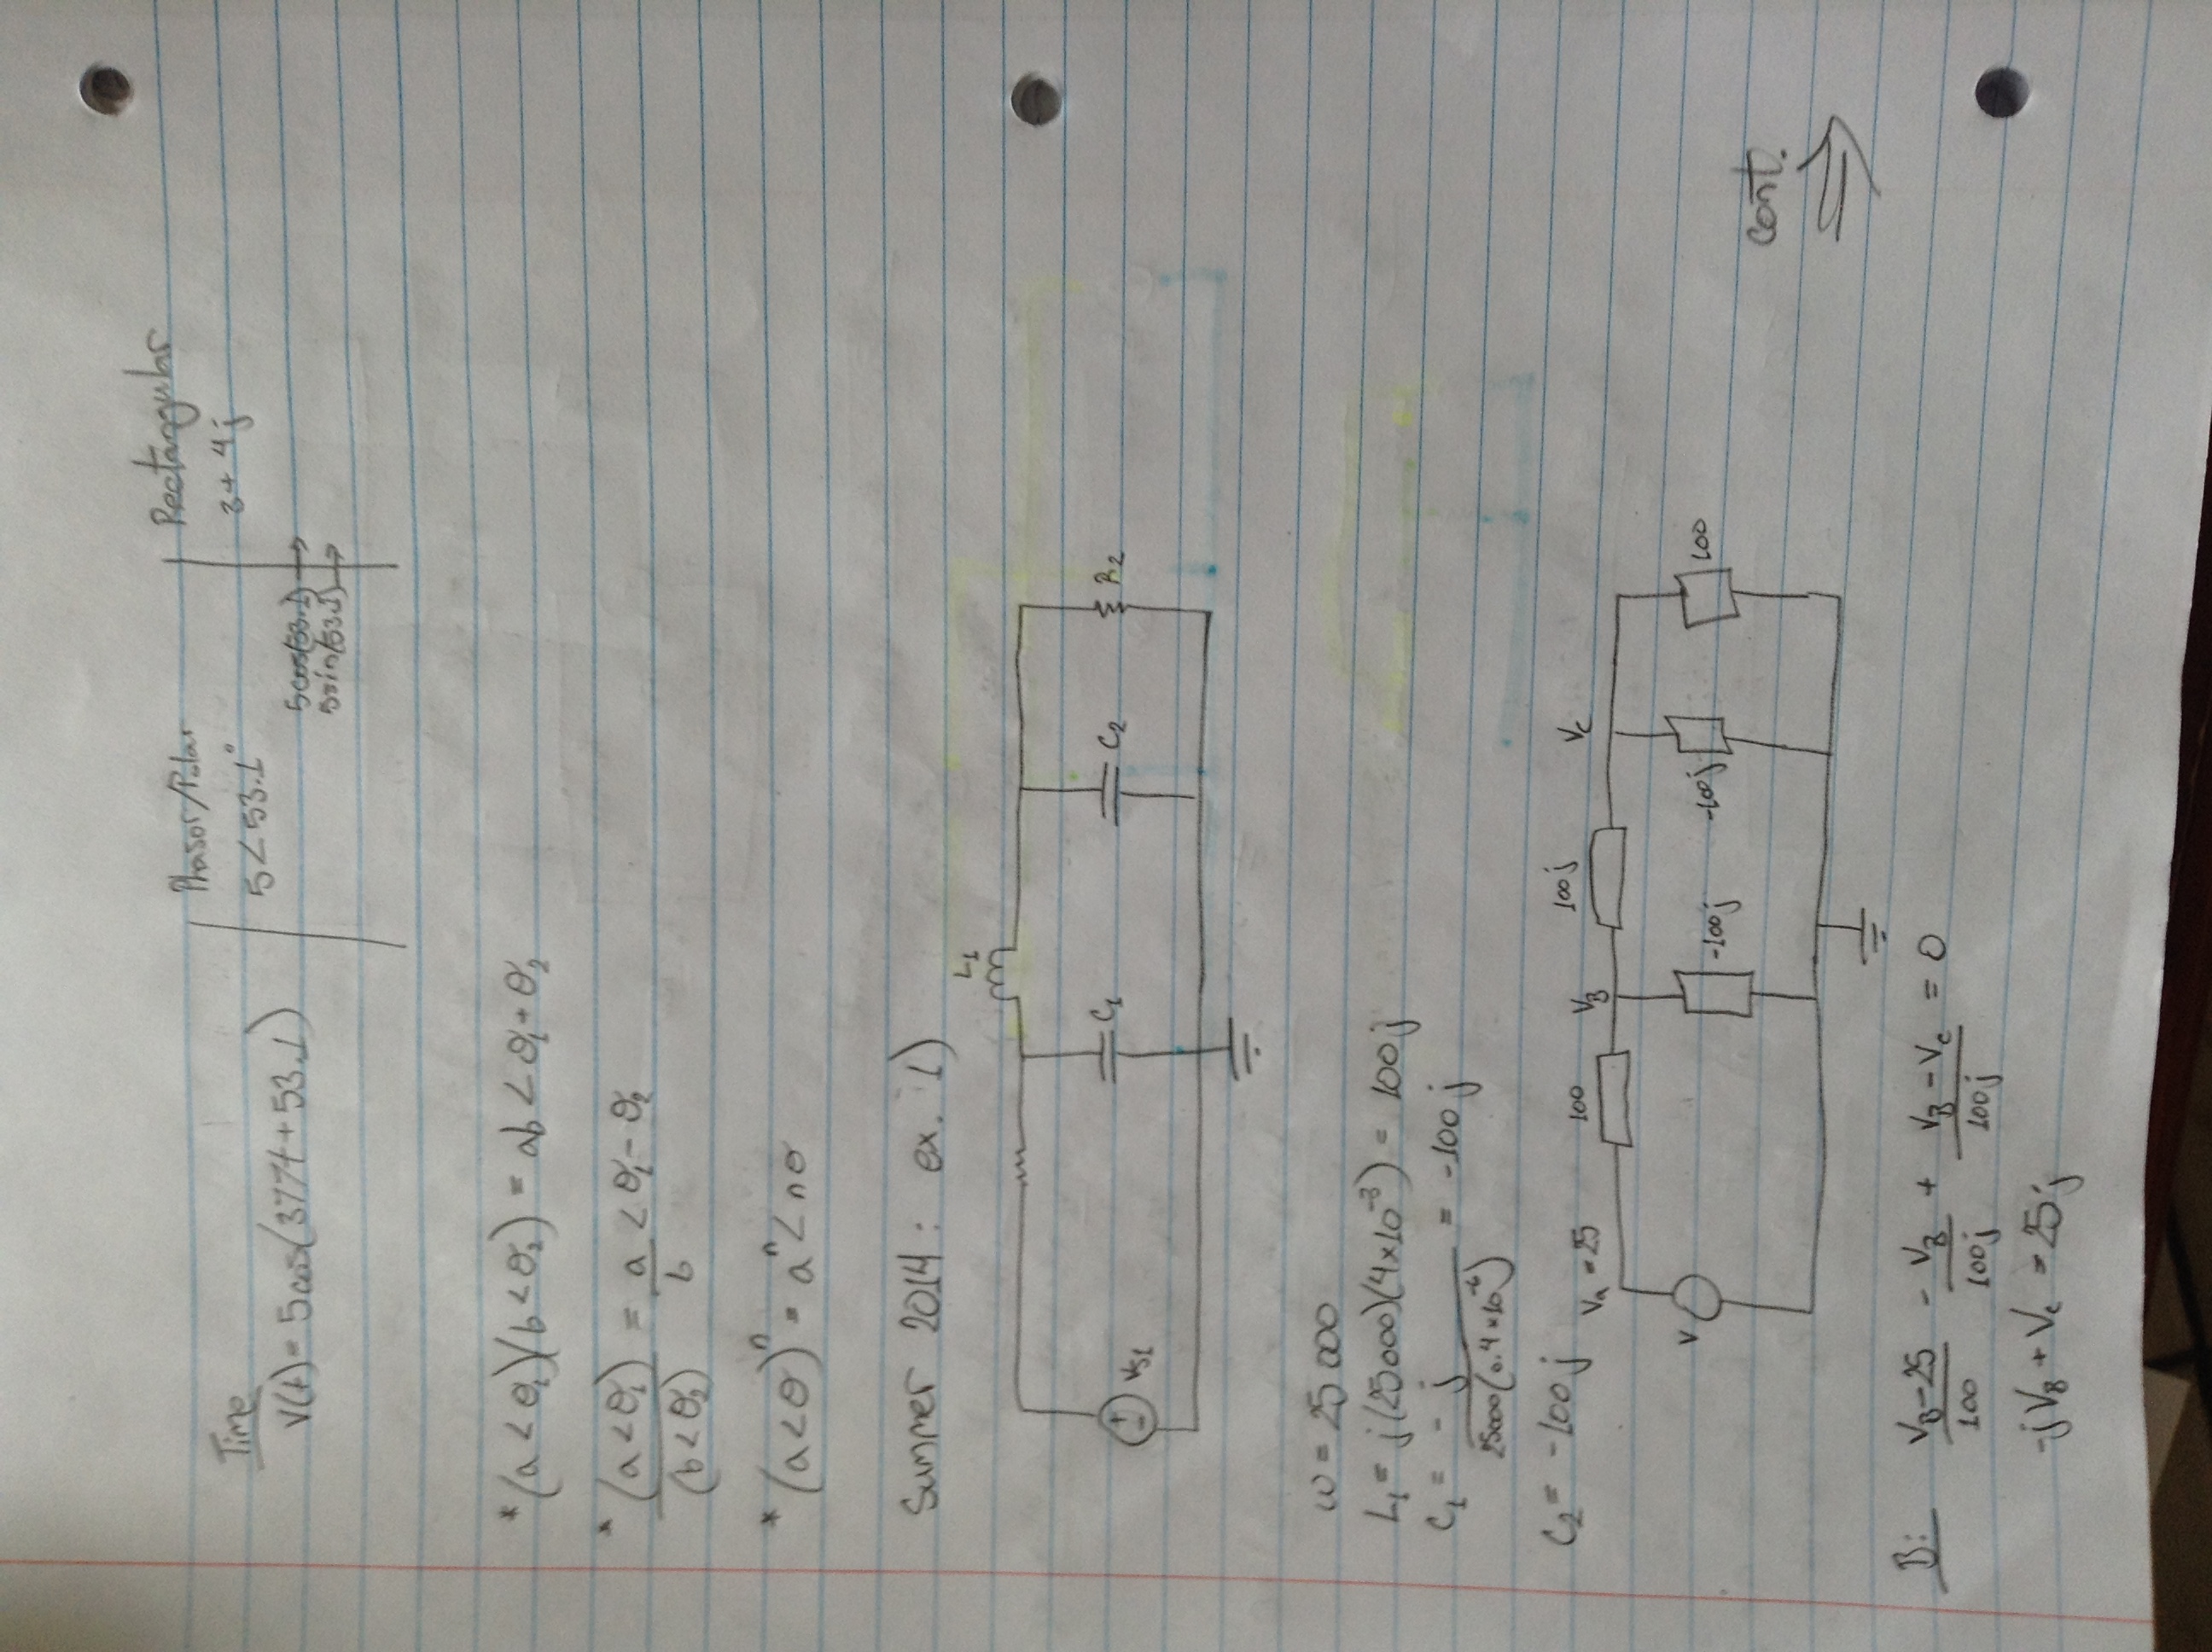 Time
V(t) = 5cos(377t + 53.1)
Phasor/Polar
5∠53.1°
5cos(53.1) →
5sin(53.1) →
Rectangular
3 + 4j
* (a∠θ₁)(b∠θ₂) = ab∠θ₁+θ₂
* (a∠θ₁)/(b∠θ₂) = a/b ∠θ₁-θ₂
* (a∠θ)ⁿ = aⁿ∠nθ
Summer 2014: ex. 1)
L₁
Vs1
C₁
C₂
R₂
ω = 25 000
L₁ = j(25000)(4×10⁻³) = 100j
C₁ = -j/25000(0.4×10⁻⁶) = -100j
C₂ = -100j
Va = 25
100
VB
100j
Vc
V
-100j
-100j
100
cont.
⇒
B: (VB-25)/100 - VB/100j + (VB-Vc)/100j = 0
-jVB + Vc = 25j